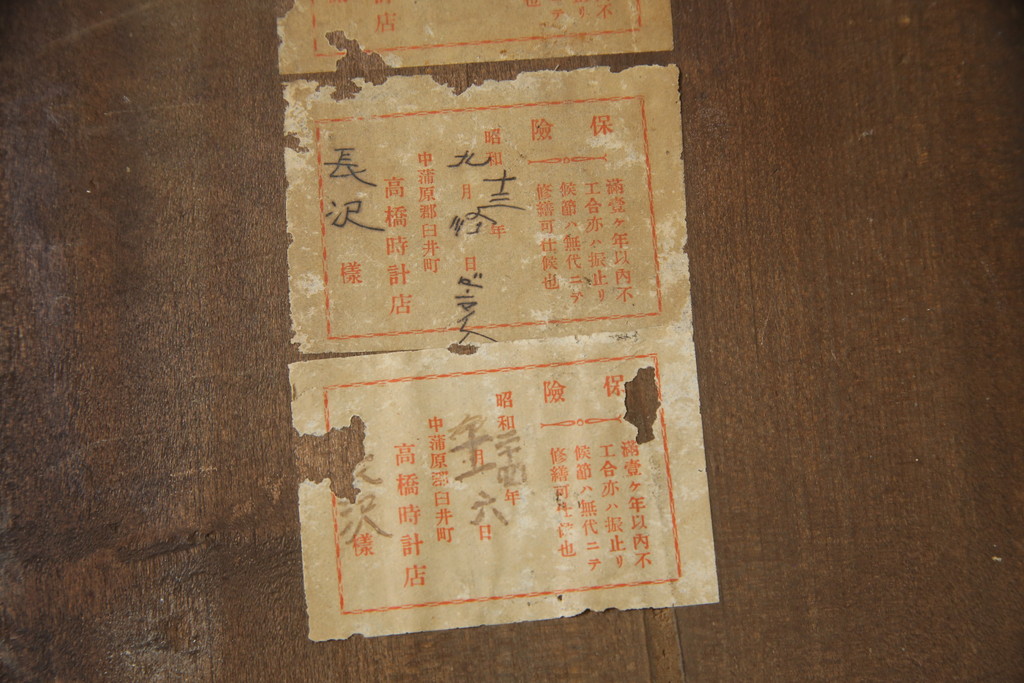 計店
保險
滿壹ヶ年以內不
工合亦ハ振止リ
候節ハ無代ニテ
修繕可仕候也
昭和十三年
九月 日
中蒲原郡臼井町
高橋時計店
長沢様
保險
滿壹ヶ年以內不
工合亦ハ振止リ
候節ハ無代ニテ
修繕可仕候也
昭和 年
月六日
中蒲原郡臼井町
高橋時計店
沢様